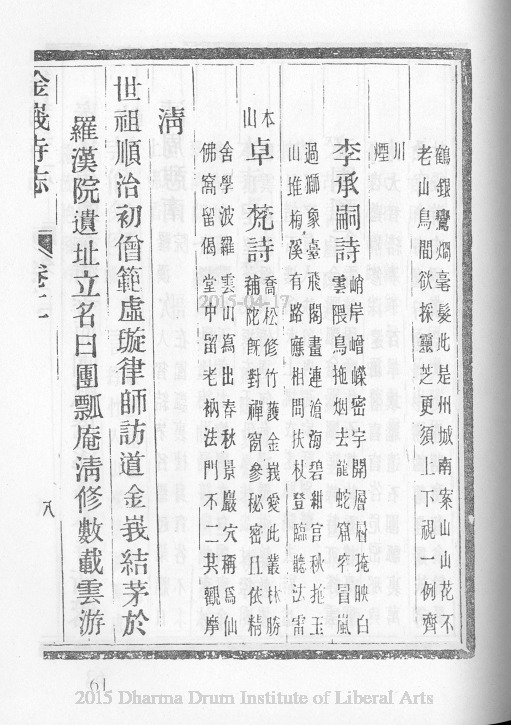 鶴銀鸞爛毫髮此是州城南案山山花不
老山鳥閒欲採靈芝更須上下視一例齊
川
煙
李承嗣詩
岸嶒嶸密宇開層層掩映白
雲隈鳥拖烟去龍蛇窟穿冒嵐
過獅象臺飛閣畫連滄海碧紺宫秋拖玉
山堆梅溪有路應相問扶杖登臨聽法雷
本山卓梵詩
喬松修竹護金峩愛此叢林勝
補陀旣對禪窗參秘密且依精
舍學波羅雲山爲出春秋景巖穴稱爲仙
佛窩留偈堂中留老衲法門不二共觀摩
清
世祖順治初僧範虛璇律師訪道金峩結茅於
羅漢院遺址立名曰團瓢庵清修數載雲游
金峩寺志
卷十
八
61
2015-04-17
2015 Dharma Drum Institute of Liberal Arts